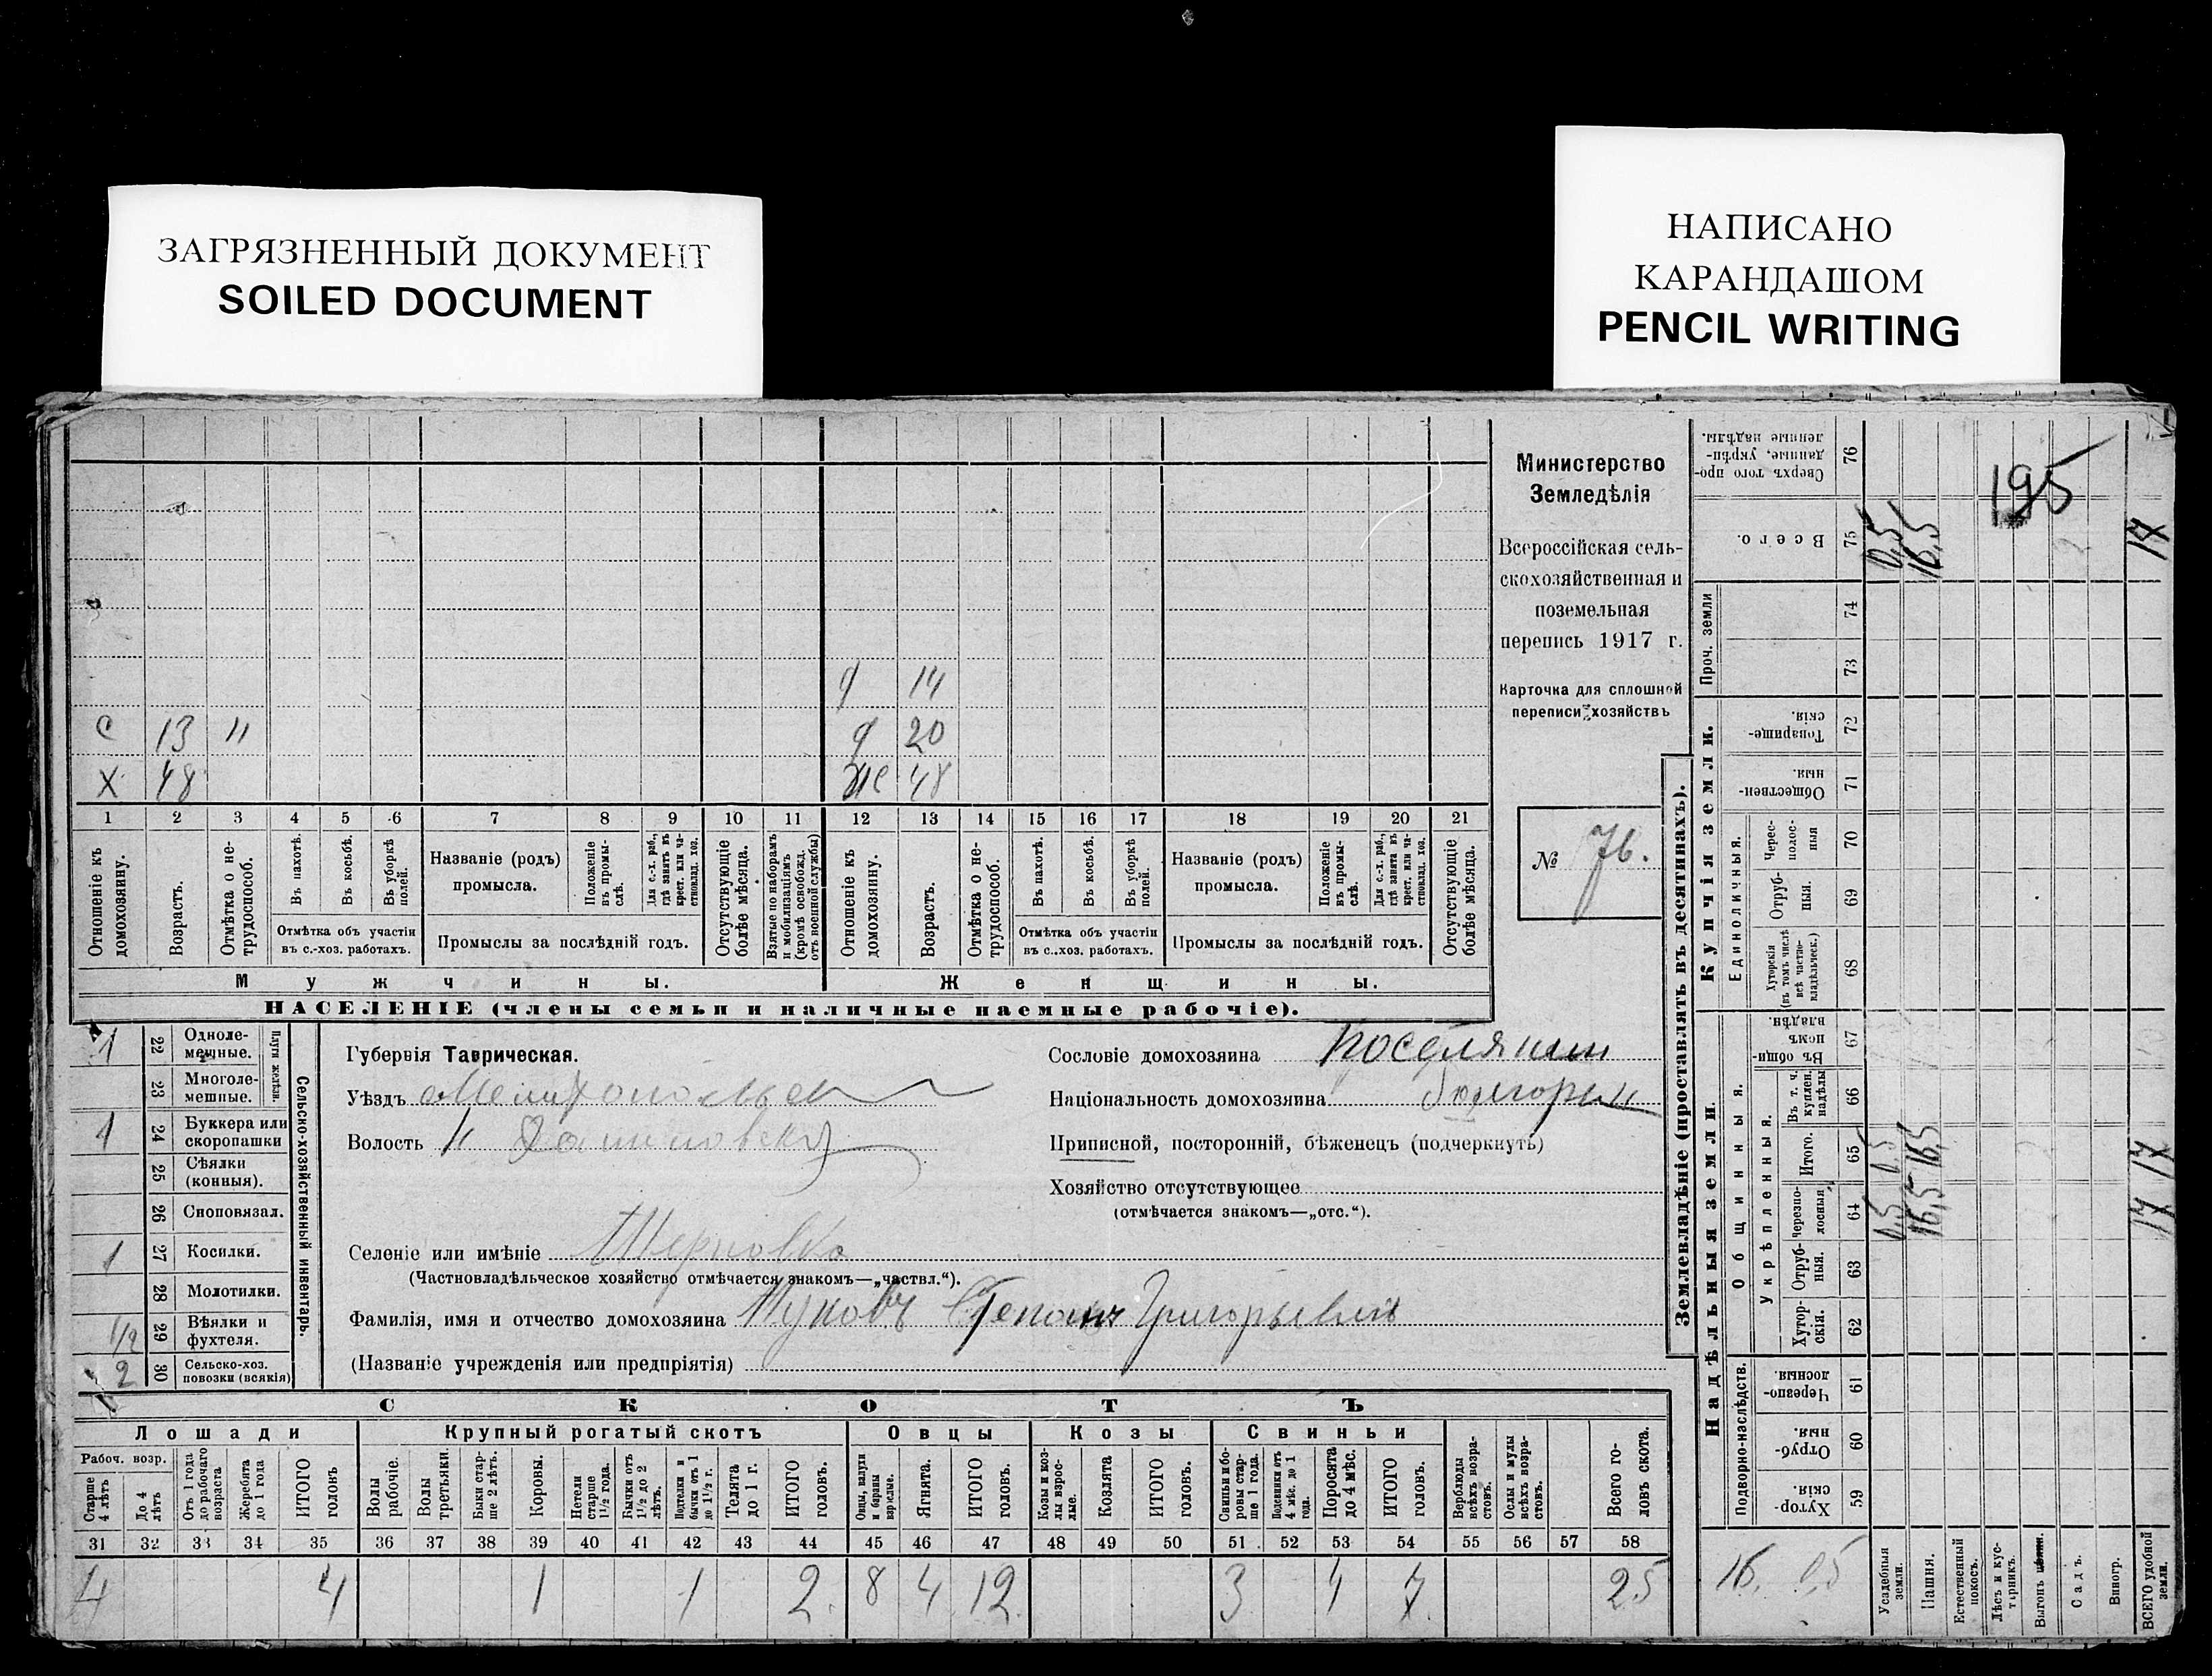 ЗАГРЯЗНЕННЫЙ ДОКУМЕНТ
SOILED DOCUMENT
НАПИСАНО
КАРАНДАШОМ
PENCIL WRITING
Министерство
Земледѣлія
Всероссійская сель-
скохозяйственная и
поземельная
перепись 1917 г.
Карточка для сплошной
переписи хозяйствъ
№ 76.
195
д 14
С 13 "
д 20
Х 48
Ж 48
1 2 3 4 5 6 7 8 9 10 11 12 13 14 15 16 17 18 19 20 21
Отношеніе къ домохозяину.
Возрастъ.
Отмѣтка о не-трудоспособ.
Въ пахотѣ.
Въ косьбѣ.
Въ уборкѣ полей.
Отмѣтка объ участіи
въ с.-хоз. работахъ.
Названіе (родъ)
промысла.
Положеніе въ промы-слѣ.
Для с.-х. раб., гдѣ занятъ въ крест. или ча-стновлад. хоз.
Промыслы за послѣдній годъ.
Отсутствующіе болѣе мѣсяца.
Взятые по наборамъ и мобилизаціямъ (кромѣ освобожд. отъ военной службы)
Отношеніе къ домохозяину.
Возрастъ.
Отмѣтка о не-трудоспособ.
Въ пахотѣ.
Въ косьбѣ.
Въ уборкѣ полей.
Отмѣтка объ участіи
въ с.-хоз. работахъ.
Названіе (родъ)
промысла.
Положеніе въ промы-слѣ.
Для с.-х. раб., гдѣ занята въ крест. или ча-стновлад. хоз.
Промыслы за послѣдній годъ.
Отсутствующіе болѣе мѣсяца.
Мужчины.
Женщины.
НАСЕЛЕНІЕ (члены семьи и наличные наемные рабочіе).
Сельско-хозяйственный инвентарь.
Плуги желѣзн.
1 22 Одноле-мешные.
23 Многоле-мешные.
1 24 Буккера или скоропашки
25 Сѣялки (конныя).
26 Сноповязал.
1 27 Косилки.
28 Молотилки.
1/2 29 Вѣялки и фухтеля.
2 30 Сельско-хоз. повозки (всякія)
Губернія Таврическая.
Уѣздъ Мелитопольск
Волость
Селеніе или имѣніе
(Частновладѣльческое хозяйство отмѣчается знакомъ—„частвл.“).
Фамилія, имя и отчество домохозяина Жуковъ Степанъ Григорьевичъ
(Названіе учрежденія или предпріятія)
Сословіе домохозяина поселянин
Національность домохозяина болгорин
Приписной, посторонній, бѣженецъ (подчеркнуть)
Хозяйство отсутствующее
(отмѣчается знакомъ—„отс.“).
СКОТЪ
Лошади
Крупный рогатый скотъ
Овцы
Козы
Свиньи
Рабоч. возр.
Старше 4 лѣтъ
До 4 лѣтъ
Отъ 1 года до рабочаго возраста
Жеребята до 1 года
ИТОГО головъ
Волы рабочіе.
Волы третьяки.
Быки стар-ше 2 лѣтъ.
Коровы.
Нетели старше 1 1/2 года.
Бычки отъ 1 1/2 до 2 лѣтъ.
Подтелки и бычки отъ 1 до 1 1/2 г.
Телята до 1 г.
ИТОГО головъ.
Овцы, валухи и бараны взрослые.
Ягнята.
ИТОГО головъ.
Козы и коз-лы взрос-лые.
Козлята
ИТОГО головъ.
Свиньи и бо-ровы стар-ше 1 года.
Подсвинки отъ 4 мѣс. до 1 года.
Поросята до 4 мѣс.
ИТОГО головъ.
Верблюды всѣхъ возра-стовъ.
Ослы и мулы всѣхъ возра-стовъ.
Всего го-ловъ скота.
31 32 33 34 35 36 37 38 39 40 41 42 43 44 45 46 47 48 49 50 51 52 53 54 55 56 57 58
4 4 1 1 2. 8 4 12. 3 4 7. 25
Землевладѣніе (проставлять въ десятинахъ).
Сверхъ того про-данные, укрѣп-ленные надѣлы. 76
Всего. 75
0,5 16,5 17
Проч. земли
74
73
Купчія земли.
Товарище-скія. 72
Обществен-ныя. 71
Единоличныя.
Черес-полос-ныя 70
Отруб-ныя. 69
Хуторскія (въ томъ числѣ всѣ частно-владѣльческ.) 68
Надѣльныя земли.
Общинныя.
Въ общи-номъ владѣн. 67
Укрѣпленныя.
Въ т. ч. куплен. надѣлы 66
Итого. 65
0,5 16,5 17
Черезпо-лосныя 64
0,5 16,5 17
Отруб-ныя. 63
Хутор-скія. 62
Подворно-наслѣдств.
Черезпо-лосныя. 61
Отруб-ныя. 60
Хутор-скія. 59
16. 0,5
Усадебныя земли.
Пашня.
Естественный покосъ.
Лѣсъ и кус-тарникъ.
Выгонъ
Садъ.
Виногр.
ВСЕГО удобной земли.